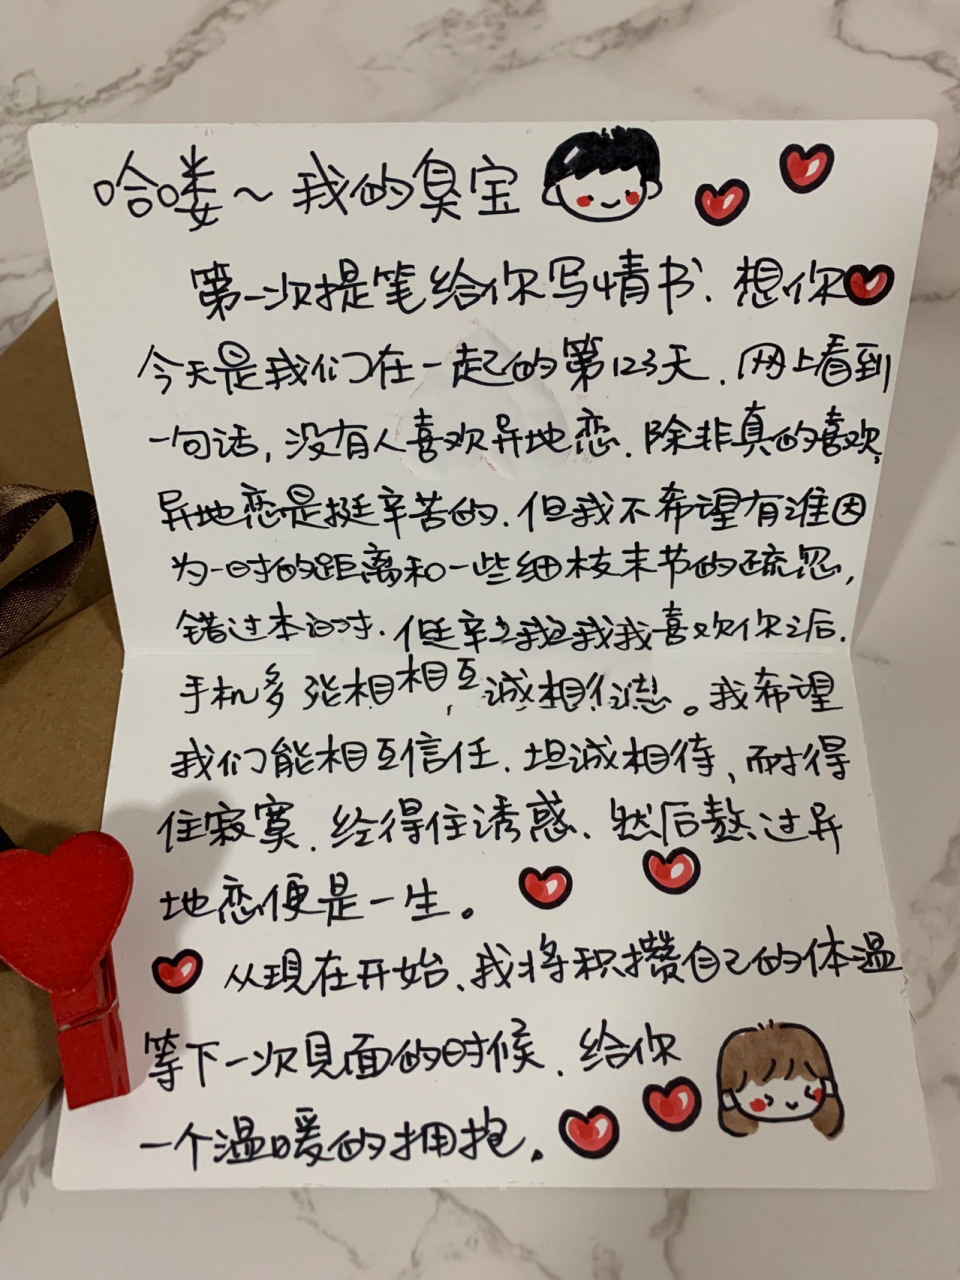 哈喽~我的臭宝
第一次提笔给你写情书、想你
今天是我们在一起的第123天、网上看到
一句话，没有人喜欢异地恋、除非真的喜欢，
异地恋是挺辛苦的、但我不希望有谁因
为一时的距离和一些细枝末节的疏忽，
错过本 我我喜欢你之后、
手机多 相相互，诚相 。我希望
我们能相互信任、坦诚相待、耐得
住寂寞、经得住诱惑、然后熬过异
地恋便是一生。
从现在开始、我将积攒自己的体温
等下一次见面的时候、给你
一个温暖的拥抱。